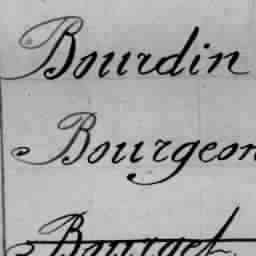 Bourdin
Bourgeon
Bourget